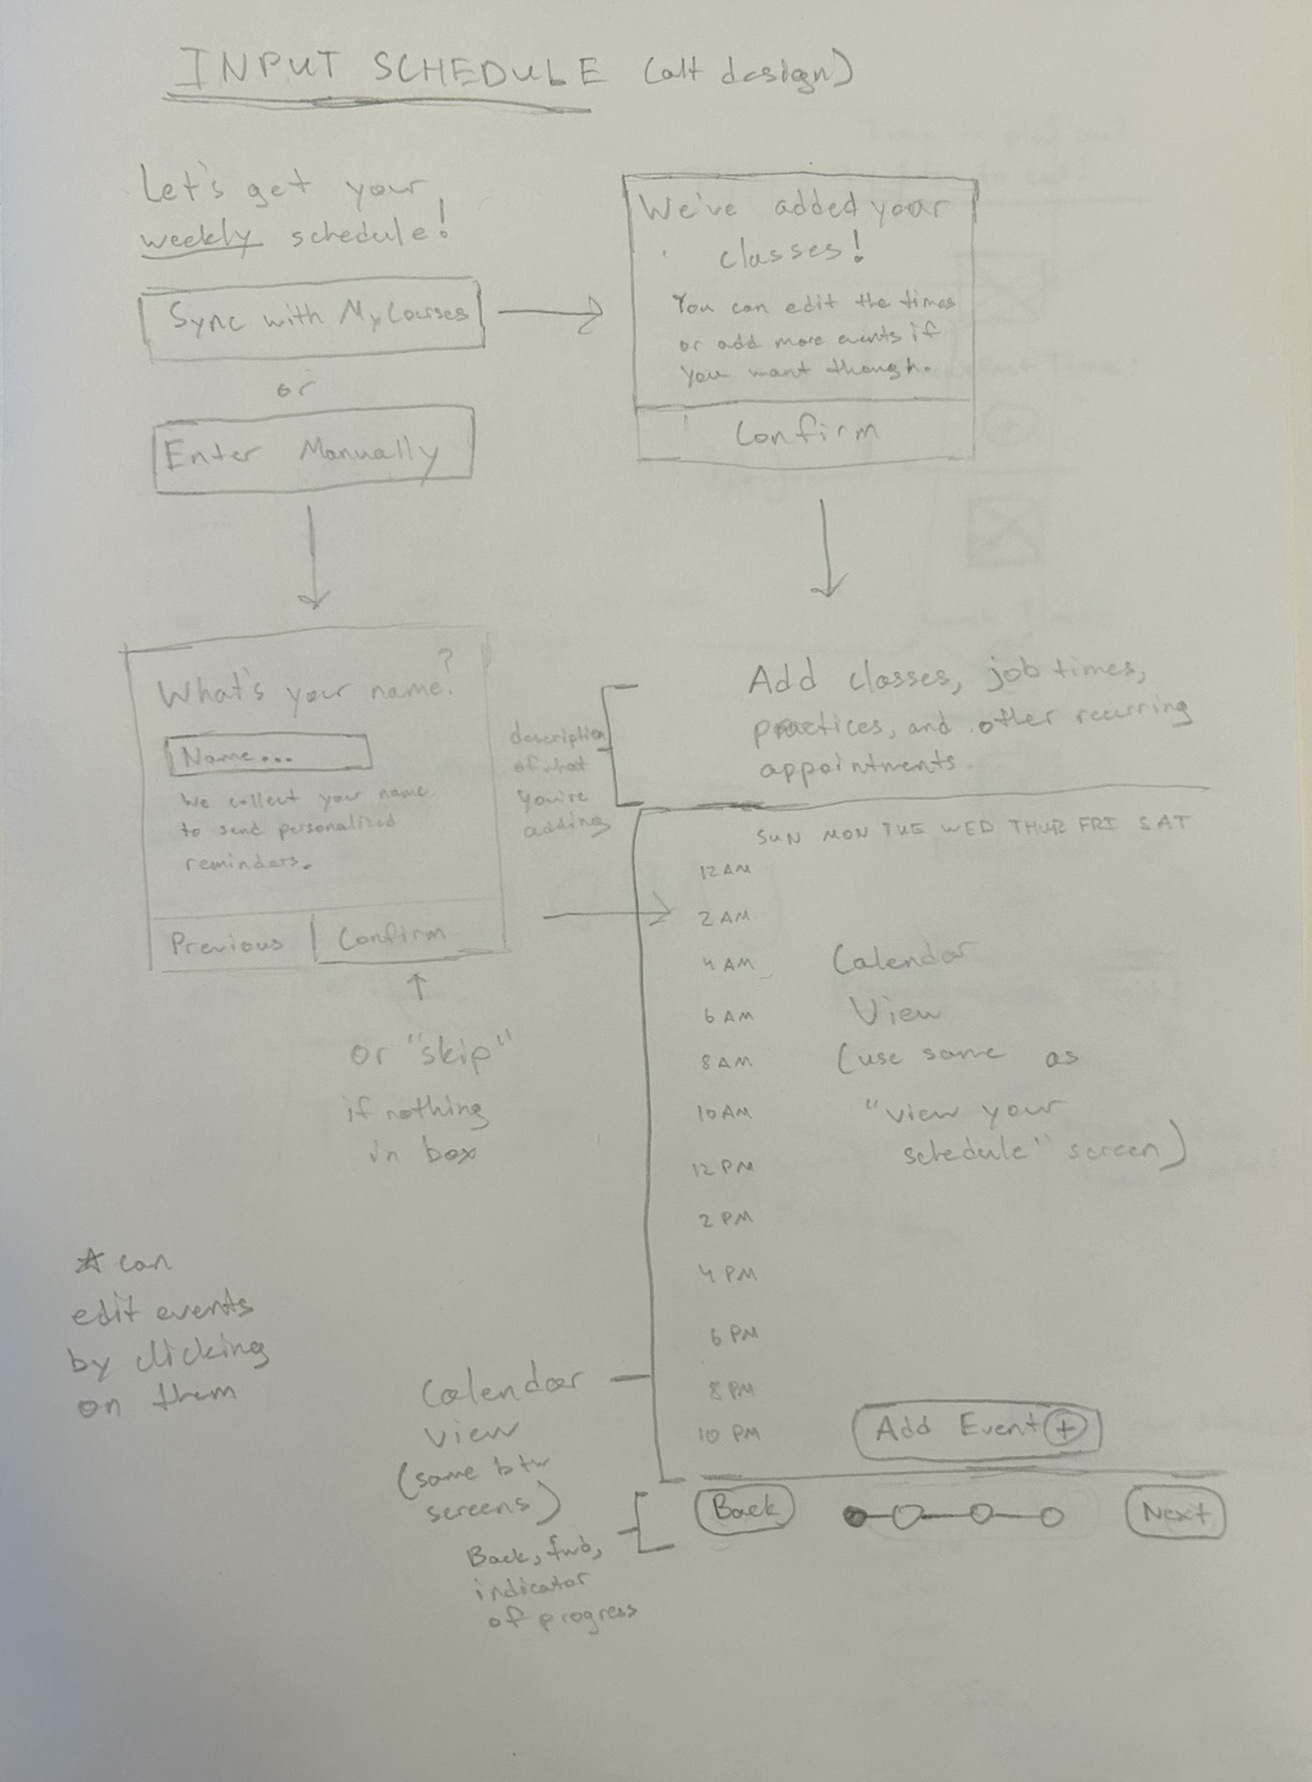 INPUT SCHEDULE (alt design)
Let's get your
weekly schedule!
Sync with MyCourses
or
Enter Manually
We've added your
classes!
You can edit the times
or add more events if
you want though.
Confirm
What's your name?
?
Name...
We collect your name
to send personalized
reminders.
Previous
Confirm
or "skip"
if nothing
in box
description
of what
you're
adding
Add classes, job times,
practices, and other recurring
appointments.
SUN MON TUE WED THUR FRI SAT
12 AM
2 AM
4 AM
6 AM
8 AM
10 AM
12 PM
2 PM
4 PM
6 PM
8 PM
10 PM
Calendar
View
(use same as
"view your
schedule" screen)
Add Event +
Back
Next
* can
edit events
by clicking
on them
Calendar
view
(same btw
screens)
Back, fwd,
indicator
of progress